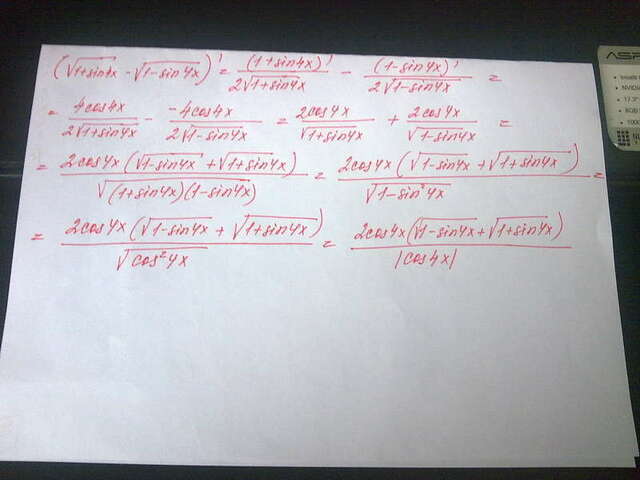 (√(1+sin4x) - √(1-sin4x))' = (1+sin4x)' / (2√(1+sin4x)) - (1-sin4x)' / (2√(1-sin4x)) =
= 4cos4x / (2√(1+sin4x)) - -4cos4x / (2√(1-sin4x)) = 2cos4x / √(1+sin4x) + 2cos4x / √(1-sin4x) =
= 2cos4x(√(1-sin4x) + √(1+sin4x)) / √((1+sin4x)(1-sin4x)) = 2cos4x(√(1-sin4x) + √(1+sin4x)) / √(1-sin²4x) =
= 2cos4x(√(1-sin4x) + √(1+sin4x)) / √(cos²4x) = 2cos4x(√(1-sin4x) + √(1+sin4x)) / |cos4x|